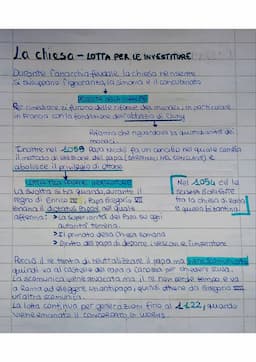 La chiesa – LOTTA PER LE INVESTITURE
Durante l'anarchia feudale la chiesa ne risente.
Si sviluppano l'ignoranza, la simonia e il concubinato
Per rimediare, si furono delle riforme dei monaci, in particolare
in Francia con la fondazione dell'abbazia di Cluny
Riforma che riguardava la quotidianità dei
monaci
Inoltre nel 1059 Papa Nicolò fa un concilio nel quale cambia
il metodo di elezione del papa (CARDINALI NEL CONCLAVE) e
abolisce il privilegio di Ottone
LOTTA PER LE INVESTITURE
La svolta si ha quando, durante il
regno di Enrico, Papa Gregorio VII
emana il dictatus Papae nel quale
afferma: > La superiorità del Papa su ogni
autorità terrena.
> Il primato della Chiesa Romana
> Diritto del papa di deporre i vescovi e l'investitura
Nel 1054 c'è lo
scisma
tra la chiesa di Roma
e quella bizantina
Perciò il re tenta di neutralizzare il papa ma viene scomunicato
quindi va al castello del papa a Canossa per chiedere scusa.
La scomunica viene revocata ma il re non perde tempo e va
a Roma ad eleggere un antipapa, quindi ottiene da Gregorio VII
un'altra scomunica.
La lotta continua per generazioni fino al 1122, quando
viene emanato il CONCORDATO DI WORMS.